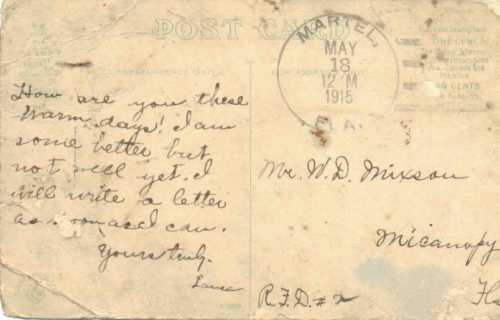 POST CARD
MARTEL,
MAY
18
12 M
1915
FLA.
How are you these
warm days! I am
some better but
not well yet. I
will write a letter
as soon as I can.
Yours truly.
Mr. W.D. Mixson
Micanopy
R.F.D. # 2